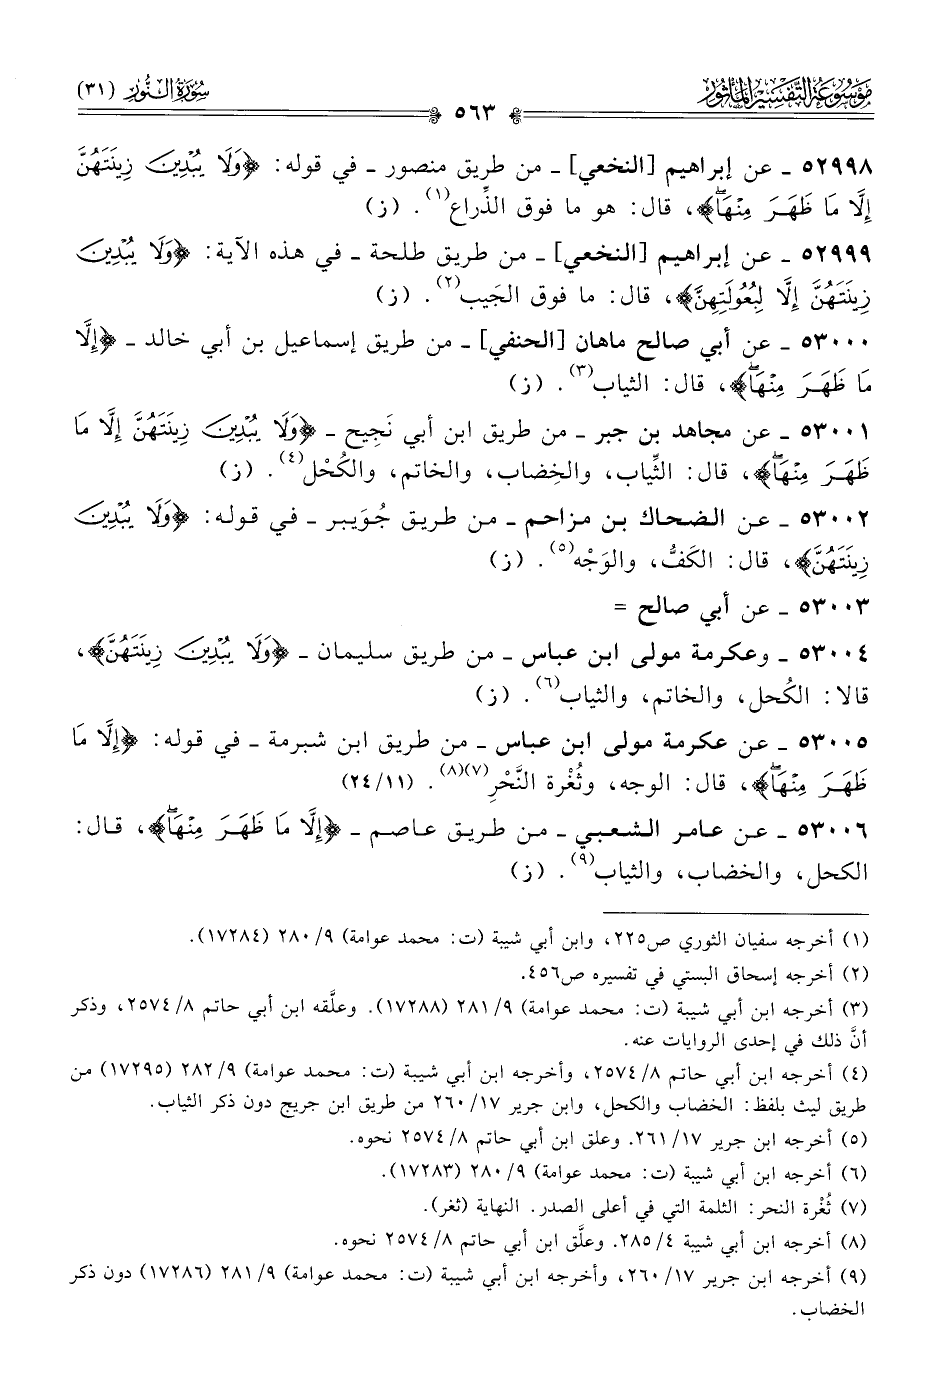 مَوْسُوعَةُ التَّفْسِيرِ المَأْثُورِ
سُورَةُ النُّورِ (٣١)
٥٦٣
٥٢٩٩٨ ـ عن إبراهيم [النخعي] ـ من طريق منصور ـ في قوله: ﴿وَلَا يُبْدِينَ زِينَتَهُنَّ
إِلَّا مَا ظَهَرَ مِنْهَا﴾، قال: هو ما فوق الذِّراع(١). (ز)
٥٢٩٩٩ ـ عن إبراهيم [النخعي] ـ من طريق طلحة ـ في هذه الآية: ﴿وَلَا يُبْدِينَ
زِينَتَهُنَّ إِلَّا لِبُعُولَتِهِنَّ﴾، قال: ما فوق الجَيب(٢). (ز)
٥٣٠٠٠ ـ عن أبي صالح ماهان [الحنفي] ـ من طريق إسماعيل بن أبي خالد ـ ﴿إِلَّا
مَا ظَهَرَ مِنْهَا﴾، قال: الثياب(٣). (ز)
٥٣٠٠١ ـ عن مجاهد بن جبر ـ من طريق ابن أبي نَجِيح ـ ﴿وَلَا يُبْدِينَ زِينَتَهُنَّ إِلَّا مَا
ظَهَرَ مِنْهَا﴾، قال: الثِّياب، والخِضاب، والخاتم، والكُحْل(٤). (ز)
٥٣٠٠٢ ـ عن الضحاك بن مزاحم ـ من طريق جُوَيبر ـ في قوله: ﴿وَلَا يُبْدِينَ
زِينَتَهُنَّ﴾، قال: الكَفُّ، والوَجْه(٥). (ز)
٥٣٠٠٣ ـ عن أبي صالح =
٥٣٠٠٤ ـ وعكرمة مولى ابن عباس ـ من طريق سليمان ـ ﴿وَلَا يُبْدِينَ زِينَتَهُنَّ﴾،
قالا: الكُحل، والخاتم، والثياب(٦). (ز)
٥٣٠٠٥ ـ عن عكرمة مولى ابن عباس ـ من طريق ابن شبرمة ـ في قوله: ﴿إِلَّا مَا
ظَهَرَ مِنْهَا﴾، قال: الوجه، وثُغْرة النَّحْرِ(٧)(٨). (١١/ ٢٤)
٥٣٠٠٦ ـ عن عامر الشعبي ـ من طريق عاصم ـ ﴿إِلَّا مَا ظَهَرَ مِنْهَا﴾، قال:
الكحل، والخضاب، والثياب(٩). (ز)
(١) أخرجه سفيان الثوري ص٢٢٥، وابن أبي شيبة (ت: محمد عوامة) ٩/ ٢٨٠ (١٧٢٨٤).
(٢) أخرجه إسحاق البستي في تفسيره ص٤٥٦.
(٣) أخرجه ابن أبي شيبة (ت: محمد عوامة) ٩/ ٢٨١ (١٧٢٨٨). وعلَّقه ابن أبي حاتم ٨/ ٢٥٧٤، وذكر
أنَّ ذلك في إحدى الروايات عنه.
(٤) أخرجه ابن أبي حاتم ٨/ ٢٥٧٤، وأخرجه ابن أبي شيبة (ت: محمد عوامة) ٩/ ٢٨٢ (١٧٢٩٥) من
طريق ليث بلفظ: الخضاب والكحل، وابن جرير ١٧/ ٢٦٠ من طريق ابن جريج دون ذكر الثياب.
(٥) أخرجه ابن جرير ١٧/ ٢٦١. وعلق ابن أبي حاتم ٨/ ٢٥٧٤ نحوه.
(٦) أخرجه ابن أبي شيبة (ت: محمد عوامة) ٩/ ٢٨٠ (١٧٢٨٣).
(٧) ثُغْرة النحر: الثلمة التي في أعلى الصدر. النهاية (ثغر).
(٨) أخرجه ابن أبي شيبة ٤/ ٢٨٥. وعلَّق ابن أبي حاتم ٨/ ٢٥٧٤ نحوه.
(٩) أخرجه ابن جرير ١٧/ ٢٦٠، وأخرجه ابن أبي شيبة (ت: محمد عوامة) ٩/ ٢٨١ (١٧٢٨٦) دون ذكر
الخضاب.